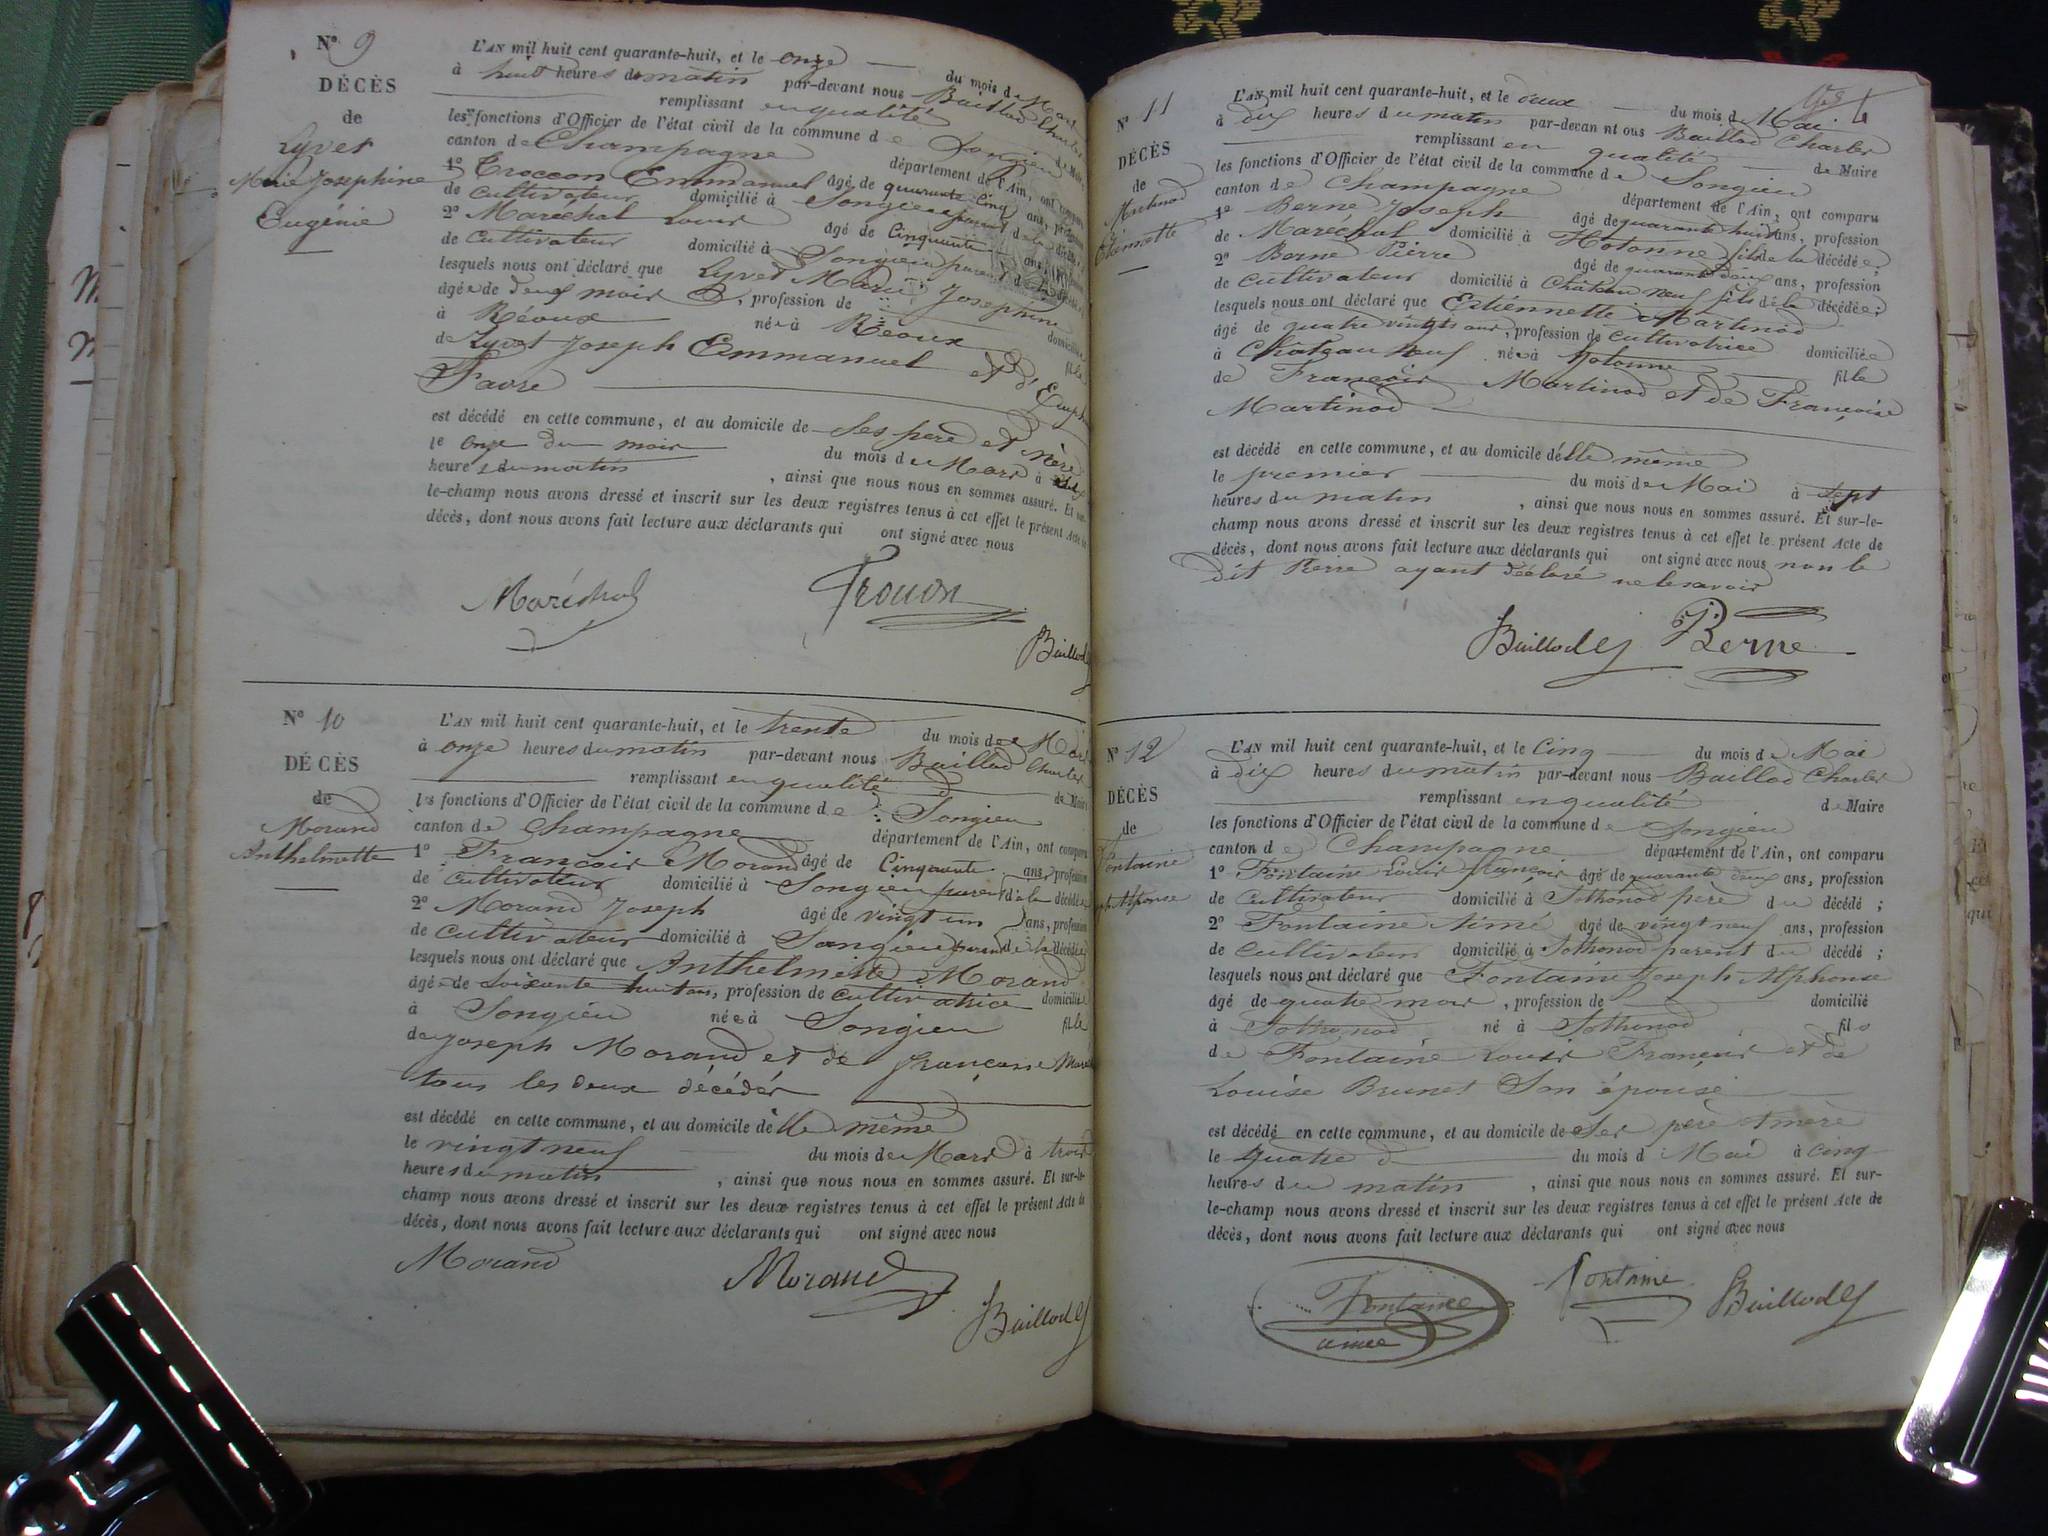 N° 9
DÉCÈS
de
Lyvet
Marie Josephine
Eugénie
L'AN mil huit cent quarante-huit, et le onze du mois de Mars
à huit heures du matin par-devant nous Baillod Charles
remplissant en qualité de Maire
les fonctions d'Officier de l'état civil de la commune de Songieu
canton de Champagne département de l'Ain, ont comparu
1° Troccon Emmanuel âgé de quarante cinq ans, profession
de cultivateur domicilié à Songieu parent de la décédée
2° Maréchal Louis âgé de Cinquante ans,
de cultivateur domicilié à Songieu parent de la
lesquels nous ont déclaré que Lyvet Marie Josephine
âgée de deux mois, profession de domiciliée
à Réoux née à Réoux fille
de Lyvet Joseph Emmanuel et d'
Favre
est décédé en cette commune, et au domicile de Ses père et Mère
le onze du mois du mois de Mars à
heures du matin, ainsi que nous nous en sommes assuré. Et sur-
le-champ nous avons dressé et inscrit sur les deux registres tenus à cet effet le présent Acte de
décès, dont nous avons fait lecture aux déclarants qui ont signé avec nous
Maréchal Troccon
Baillod
N° 10
DÉCÈS
de
Morand
Anthelmette
L'AN mil huit cent quarante-huit, et le trente du mois de Mars
à onze heures du matin par-devant nous Baillod Charles
remplissant en qualité de Maire
les fonctions d'Officier de l'état civil de la commune de Songieu
canton de Champagne département de l'Ain, ont comparu
1° Francois Morand âgé de Cinquante ans, profession
de cultivateur domicilié à Songieu parent de la décédée
2° Morand Joseph âgé de vingt un ans, profession
de cultivateur domicilié à Songieu parent de la décédée
lesquels nous ont déclaré que Anthelmette Morand
âgée de soixante huit ans, profession de cultivatrice domiciliée
à Songieu née à Songieu fille
de Joseph Morand et de françoise
tous les deux décédés
est décédé en cette commune, et au domicile d'elle même
le vingt neuf du mois de Mars à trois
heures du matin, ainsi que nous nous en sommes assuré. Et sur-le-
champ nous avons dressé et inscrit sur les deux registres tenus à cet effet le présent Acte de
décès, dont nous avons fait lecture aux déclarants qui ont signé avec nous
Morand Morand
Baillod
N° 11
DÉCÈS
de
Martinod
Etiennette
L'AN mil huit cent quarante-huit, et le deux du mois de Mai
à dix heures du matin par-devant nous Baillod Charles
remplissant en qualité de Maire
les fonctions d'Officier de l'état civil de la commune de Songieu
canton de Champagne département de l'Ain, ont comparu
1° Berne Joseph âgé de quarante huit ans, profession
de Maréchal domicilié à Hotonne fils de la décédée;
2° Berne Pierre âgé de quarante deux ans, profession
de cultivateur domicilié à Chateau neuf fils de la décédée;
lesquels nous ont déclaré que Estiennette Martinod
âgé de quatre vingts ans, profession de cultivatrice domiciliée
à Chateau neuf née à Hotonne fille
de Francois Martinod et de Françoise
Martinod
est décédé en cette commune, et au domicile d'elle même
le premier du mois de Mai à sept
heures du matin, ainsi que nous nous en sommes assuré. Et sur-le-
champ nous avons dressé et inscrit sur les deux registres tenus à cet effet le présent Acte de
décès, dont nous avons fait lecture aux déclarants qui ont signé avec nous non le
dit Pierre ayant déclaré ne le savoir
Baillod Berne
N° 12
DÉCÈS
de
Fontaine
Alphonse
L'AN mil huit cent quarante-huit, et le Cinq du mois de Mai
à dix heures du matin par-devant nous Baillod Charles
remplissant en qualité de Maire
les fonctions d'Officier de l'état civil de la commune de Songieu
canton de Champagne département de l'Ain, ont comparu
1° Fontaine Louis françois âgé de quarante deux ans, profession
de Cultivateur domicilié à Sothonod père du décédé;
2° Fontaine Aimé âgé de vingt neuf ans, profession
de cultivateur domicilié à Sothonod parent du décédé;
lesquels nous ont déclaré que Fontaine Joseph Alphonse
âgé de quatre mois, profession de domicilié
à Sothonod né à Sothonod fils
de Fontaine Louis François et de
Louise Brunet Son épouse
est décédé en cette commune, et au domicile de Ses père et mère
le quatre du mois d Mai à cinq
heures du matin, ainsi que nous nous en sommes assuré. Et sur-
le-champ nous avons dressé et inscrit sur les deux registres tenus à cet effet le présent Acte de
décès, dont nous avons fait lecture aux déclarants qui ont signé avec nous
Fontaine fontaine Baillod
aimée